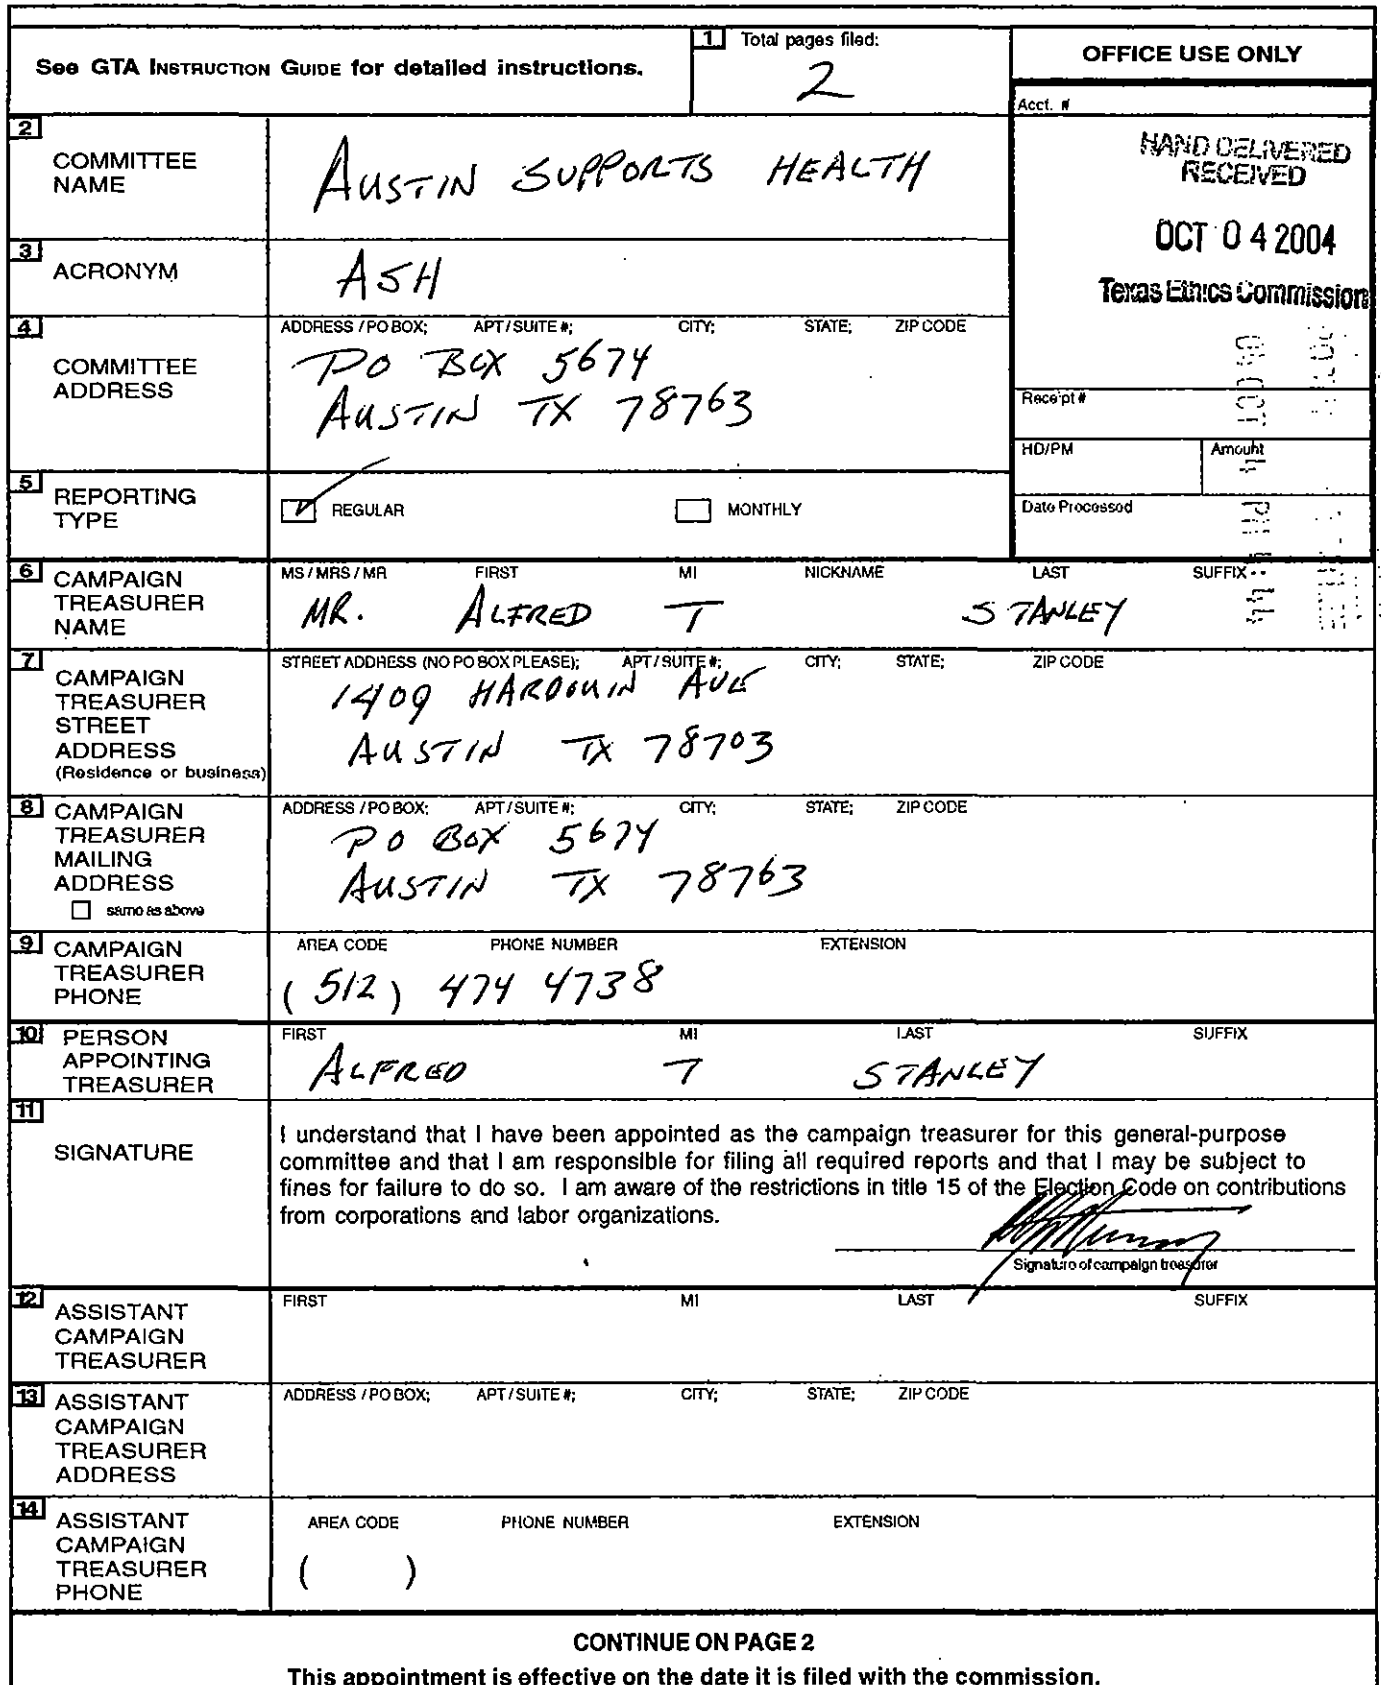 See GTA INSTRUCTION GUIDE for detailed instructions.
1 Total pages filed:
2
OFFICE USE ONLY
Acct. #
HAND DELIVERED
RECEIVED
OCT 04 2004
Texas Ethics Commission
Receipt #
HD/PM
Amount
Date Processed
2 COMMITTEE
NAME
AUSTIN SUPPORTS HEALTH
3 ACRONYM
ASH
4 COMMITTEE
ADDRESS
ADDRESS / PO BOX; APT / SUITE #; CITY; STATE; ZIP CODE
PO BOX 5674
AUSTIN TX 78763
5 REPORTING
TYPE
REGULAR
MONTHLY
6 CAMPAIGN
TREASURER
NAME
MS / MRS / MR FIRST MI NICKNAME LAST SUFFIX
MR. ALFRED T STANLEY
7 CAMPAIGN
TREASURER
STREET
ADDRESS
(Residence or business)
STREET ADDRESS (NO PO BOX PLEASE); APT / SUITE #; CITY; STATE; ZIP CODE
1409 HARDOUIN AVE
AUSTIN TX 78703
8 CAMPAIGN
TREASURER
MAILING
ADDRESS
same as above
ADDRESS / PO BOX; APT / SUITE #; CITY; STATE; ZIP CODE
PO BOX 5674
AUSTIN TX 78763
9 CAMPAIGN
TREASURER
PHONE
AREA CODE PHONE NUMBER EXTENSION
(512) 474 4738
10 PERSON
APPOINTING
TREASURER
FIRST MI LAST SUFFIX
ALFRED T STANLEY
11
SIGNATURE
I understand that I have been appointed as the campaign treasurer for this general-purpose
committee and that I am responsible for filing all required reports and that I may be subject to
fines for failure to do so. I am aware of the restrictions in title 15 of the Election Code on contributions
from corporations and labor organizations.
Signature of campaign treasurer
12 ASSISTANT
CAMPAIGN
TREASURER
FIRST MI LAST SUFFIX
13 ASSISTANT
CAMPAIGN
TREASURER
ADDRESS
ADDRESS / PO BOX; APT / SUITE #; CITY; STATE; ZIP CODE
14 ASSISTANT
CAMPAIGN
TREASURER
PHONE
AREA CODE PHONE NUMBER EXTENSION
( )
CONTINUE ON PAGE 2
This appointment is effective on the date it is filed with the commission.